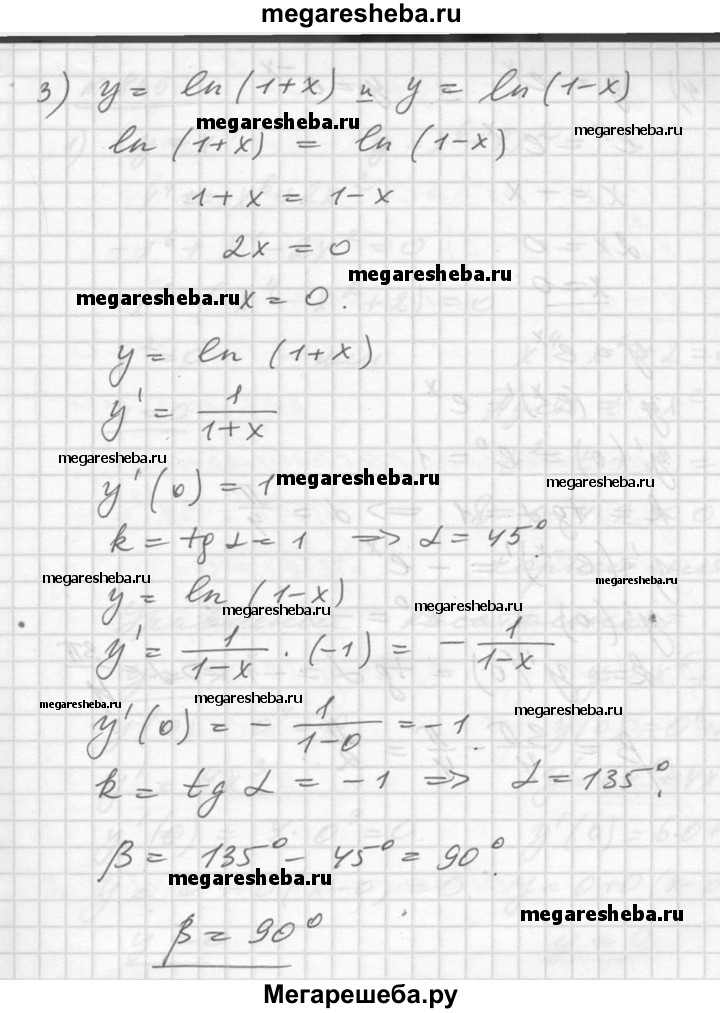 megaresheba.ru
3) y = ln (1+x) и y = ln (1-x)
megaresheba.ru
megaresheba.ru
ln (1+x) = ln (1-x)
1 + x = 1 - x
2x = 0
megaresheba.ru
megaresheba.ru x = 0.
y = ln (1+x)
y' = 1/(1+x)
megaresheba.ru
y'(0) = 1 megaresheba.ru megaresheba.ru
k = tg α = 1 => α = 45°.
megaresheba.ru megaresheba.ru
y = ln (1-x)
megaresheba.ru megaresheba.ru
y' = 1/(1-x) · (-1) = - 1/(1-x)
megaresheba.ru megaresheba.ru megaresheba.ru
y'(0) = - 1/(1-0) = -1.
k = tg α = -1 => α = 135°.
β = 135° - 45° = 90°.
megaresheba.ru
megaresheba.ru
β = 90°
Мегарешеба.ру